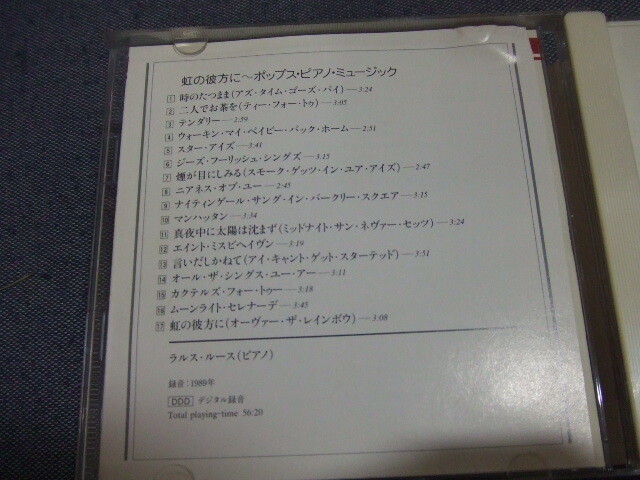 虹の彼方に〜ポップス・ピアノ・ミュージック
1 時のたつまま(アズ・タイム・ゴーズ・バイ)—3:24
2 二人でお茶を(ティー・フォー・トゥ)—3:05
3 テンダリー—2:59
4 ウォーキン・マイ・ベイビー・バック・ホーム—2:51
5 スター・アイズ—3:41
6 ジーズ・フーリッシュ・シングズ—3:15
7 煙が目にしみる(スモーク・ゲッツ・イン・ユア・アイズ)—2:47
8 ニアネス・オブ・ユー—2:45
9 ナイティンゲール・サング・イン・バークリー・スクエア—3:15
10 マンハッタン—3:34
11 真夜中に太陽は沈まず(ミッドナイト・サン・ネヴァー・セッツ)—3:24
12 エイント・ミスビヘイヴン—3:19
13 言いだしかねて(アイ・キャント・ゲット・スターテッド)—3:51
14 オール・ザ・シングス・ユー・アー—3:11
15 カクテルズ・フォー・トゥー—3:18
16 ムーンライト・セレナーデ—3:45
17 虹の彼方に(オーヴァー・ザ・レインボウ)—3:08
ラルス・ルース(ピアノ)
録音:1989年
DDD デジタル録音
Total playing-time 56:20